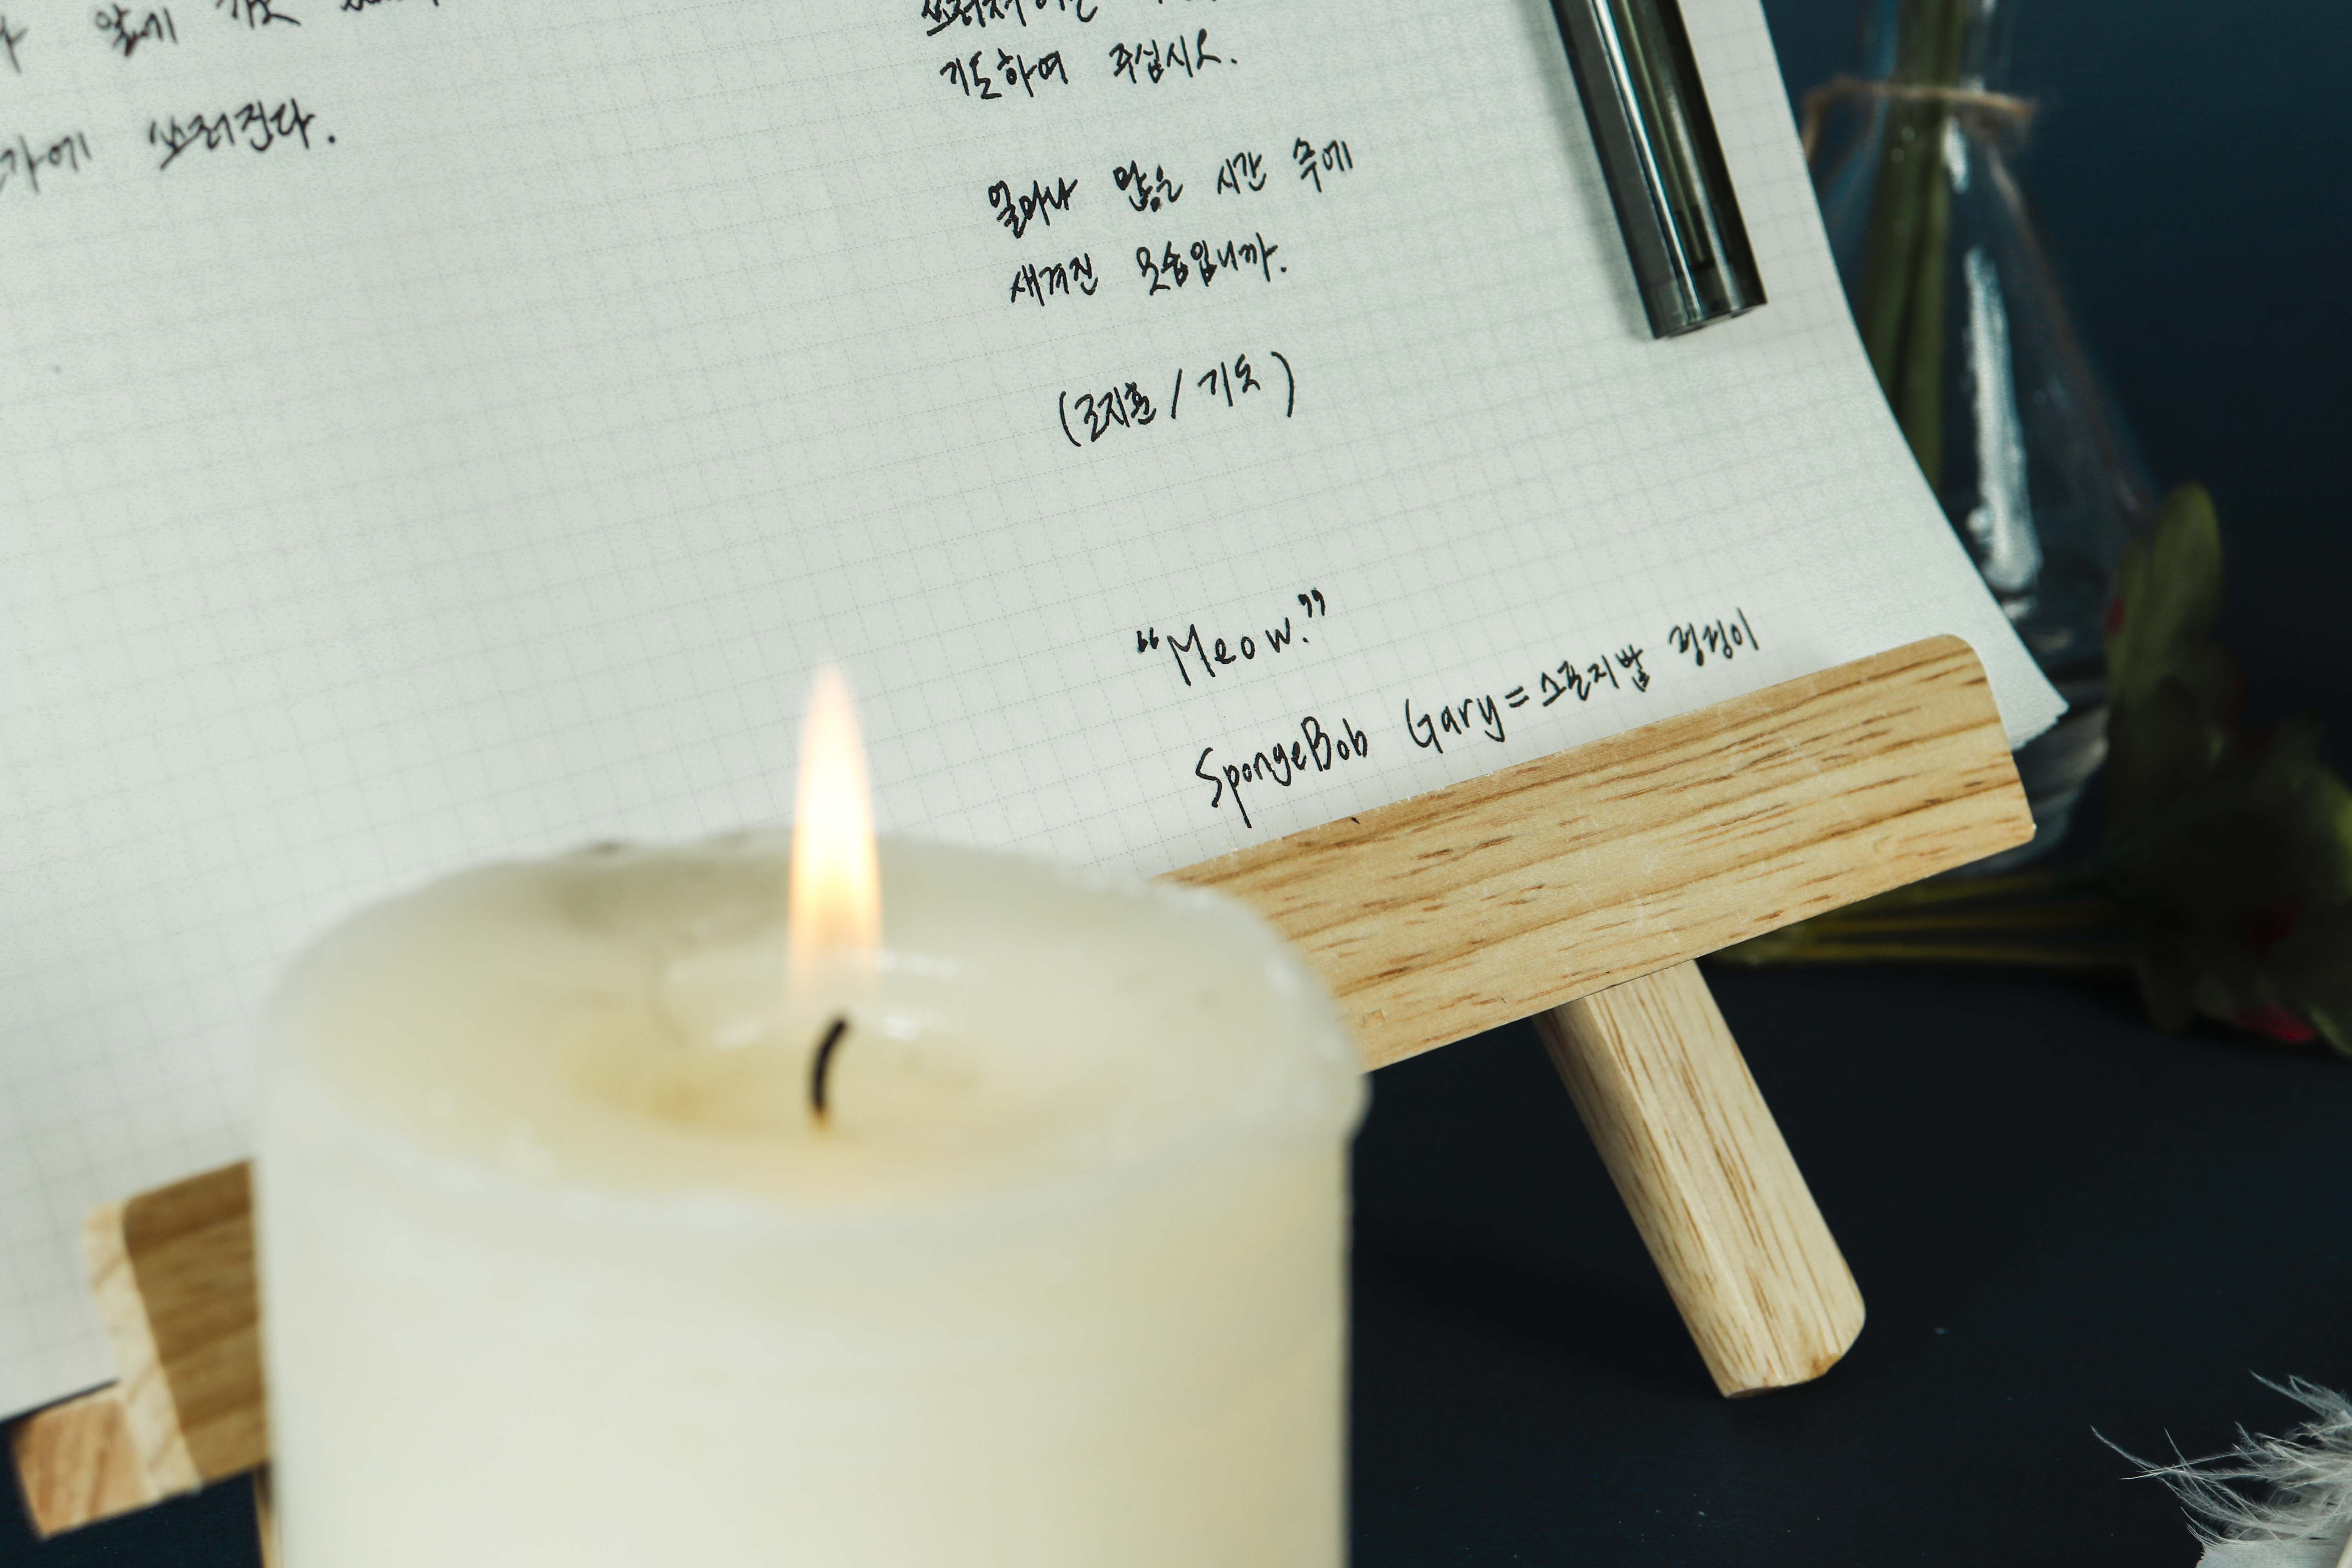 앞에
쓰러진다.
기도하여 주십시오.
얼마나 많은 시간 후에
새겨진 모습입니까.
(조지훈 / 기도)
“Meow.”
SpongeBob Gary = 스폰지밥 핑핑이